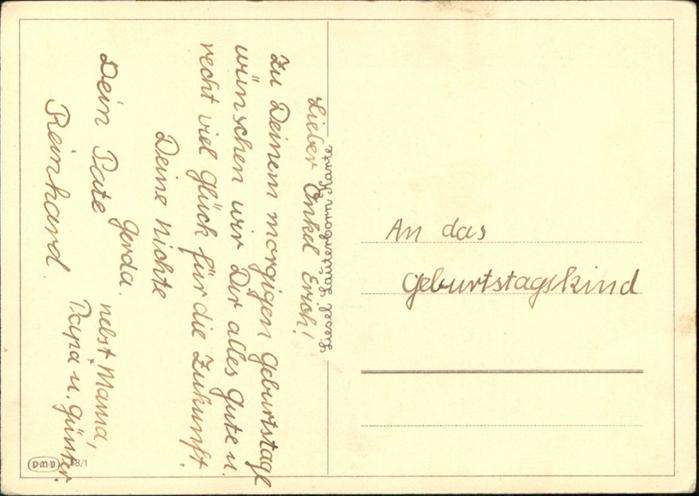 Lieber Onkel Erich!
Zu Deinem morgigen Geburtstage
wünschen wir Dir alles Gute u.
recht viel Glück für die Zukunft.
Deine Nichte
Gerda.
Dein Pate
Reinhard.
nebst Mama,
Papa u. Günter.
An das
Geburtstagskind
Karte